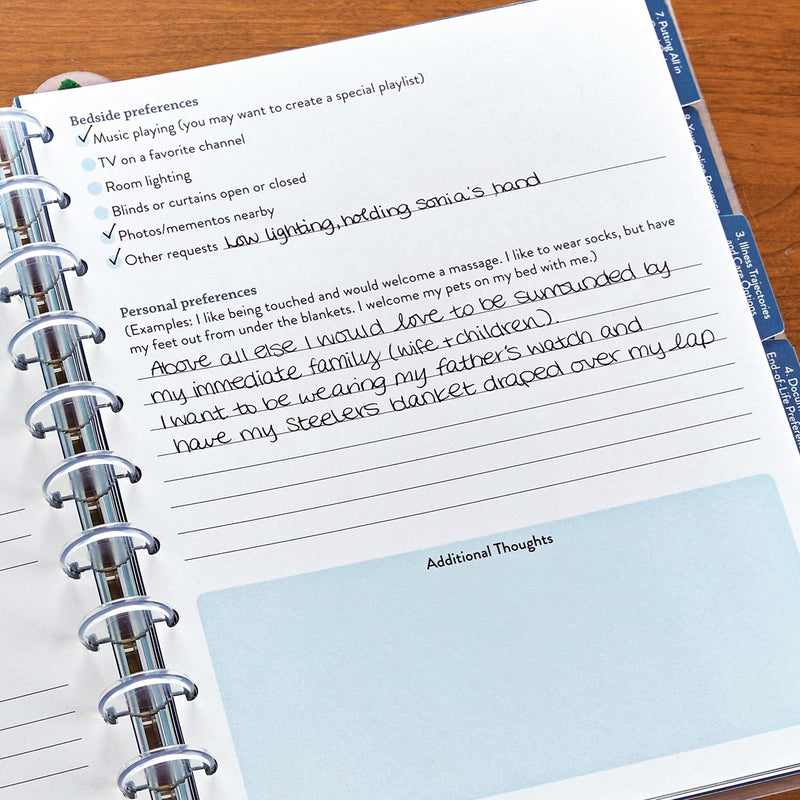 Bedside preferences
✓ Music playing (you may want to create a special playlist)
TV on a favorite channel
Room lighting
Blinds or curtains open or closed
✓ Photos/mementos nearby
✓ Other requests Low lighting, holding sonia's hand
Personal preferences
(Examples: I like being touched and would welcome a massage. I like to wear socks, but have
my feet out from under the blankets. I welcome my pets on my bed with me.)
Above all else I would love to be surrounded by
my immediate family (wife + children).
I want to be wearing my father's watch and
have my Steelers blanket draped over my lap
Additional Thoughts
7. Putting All in
8. Your Online
3. Illness Trajectories
and Care Options
4.
End-of-Life